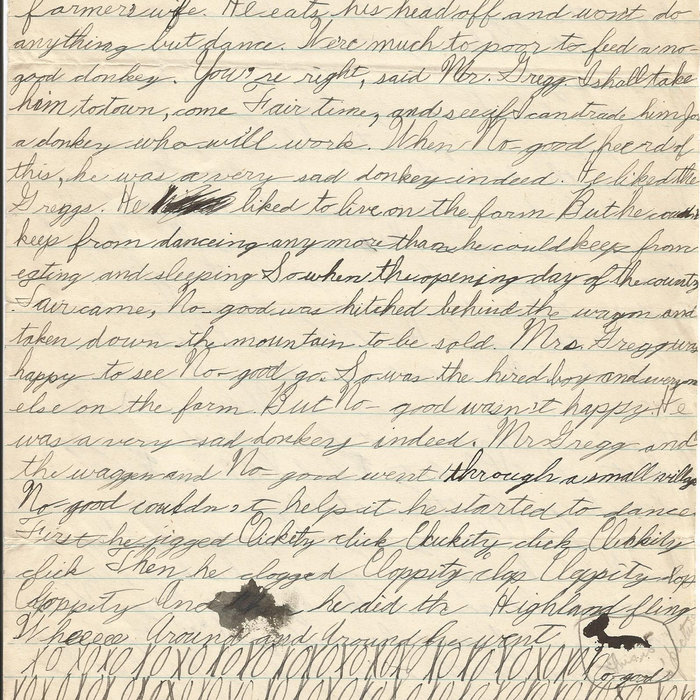 farmers wife. He eats his head off and won't do
anything but dance. We're much to poor to feed a no-
good donkey. You're right, said Mr. Gregg. I shall take
him to town, come Fair time, and see if I can trade him for
a donkey who will work. When No-good heard of
this, he was a very sad donkey indeed. He liked the
Greggs. He liked to live on the farm But he
keep from danceing any more than he could keep from
eating and sleeping So when the opening day of the county
Fair came, No-good was hitched behind the wagon and
taken down the mountain to be sold. Mrs. Gregg was
happy to see No-good go. So was the hired boy and everyone
else on the farm. But No-good wasn't happy He
was a very sad donkey indeed. Mr Gregg and
the waggen and No-good went through a small
No-good couldn't help it he started to dance
First he jigged Clickity click Clickity click Clickity
click Then he clogged Cloppity clop Cloppity clop
Cloppity And he did the Highland fling
Wheeeee Around and Around he went
XOXOXOXOXOXOXOXOXOXOXOXO No good